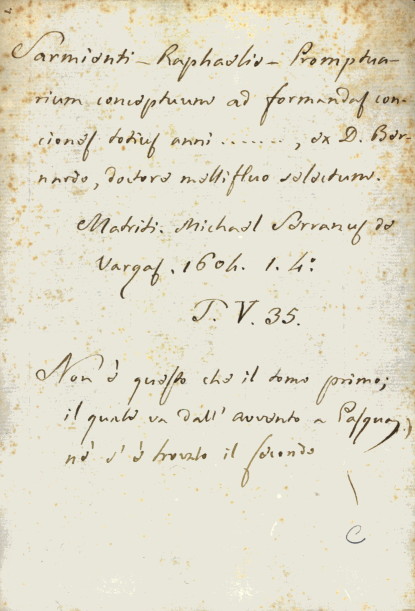 Sarmienti - Raphaelis - Promptua-
rium conceptuum ad formandas con-
ciones totius anni ......., ex D. Ber-
nardo, doctore mellifluo selectum.
Matriti. Michael Serranus de
Vargas. 1604. 1. 4:
T. V. 35.
Non è questo che il tomo primo;
il quale va dall' avvento a Pasqua,
nè s' è trovato il secondo
C